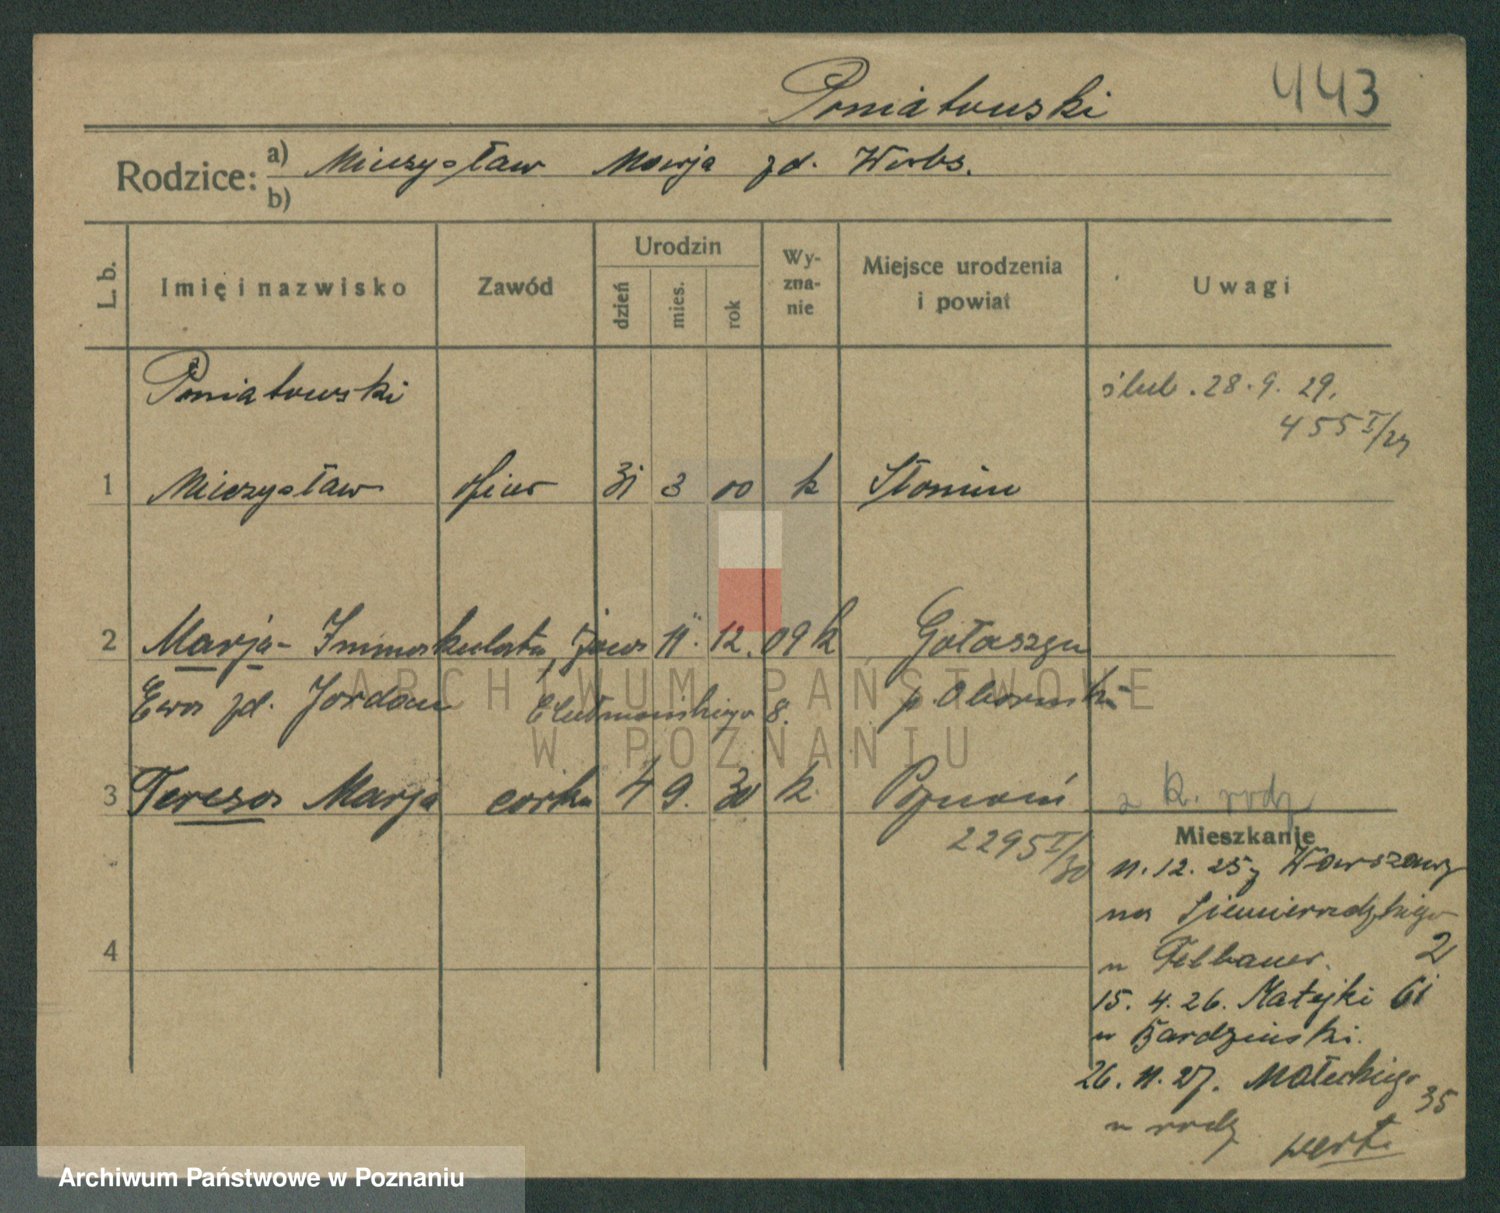 Poniatowski 443
Rodzice: a) Mieczysław Marja zd. Werbs.
b)
L. b. Imię i nazwisko Zawód Urodzin dzień mies. rok Wyznanie Miejsce urodzenia i powiat Uwagi
Poniatowski ślub. 28. 9. 29.
455 I/29
1 Mieczysław oficer 31 3 00 k Słonim
2 Marja - Immakulata, żona 11. 12. 09 k Gołaszyn
Ewa zd. Jordan 8. p. Obornicki
3 Teresa Marja córka 4 9. 30 k. Poznań z k. rodz
2295 I/30
Mieszkanie
11. 12. 25 z Warszawy
na Siemieradzkiego
u Felbauer. 2
4
15. 4. 26. Matejki 61
u Bardziński.
26. 11. 27. Małeckiego 35
u rodz
wert.
ARCHIWUM PAŃSTWOWE
W POZNANIU
Archiwum Państwowe w Poznaniu